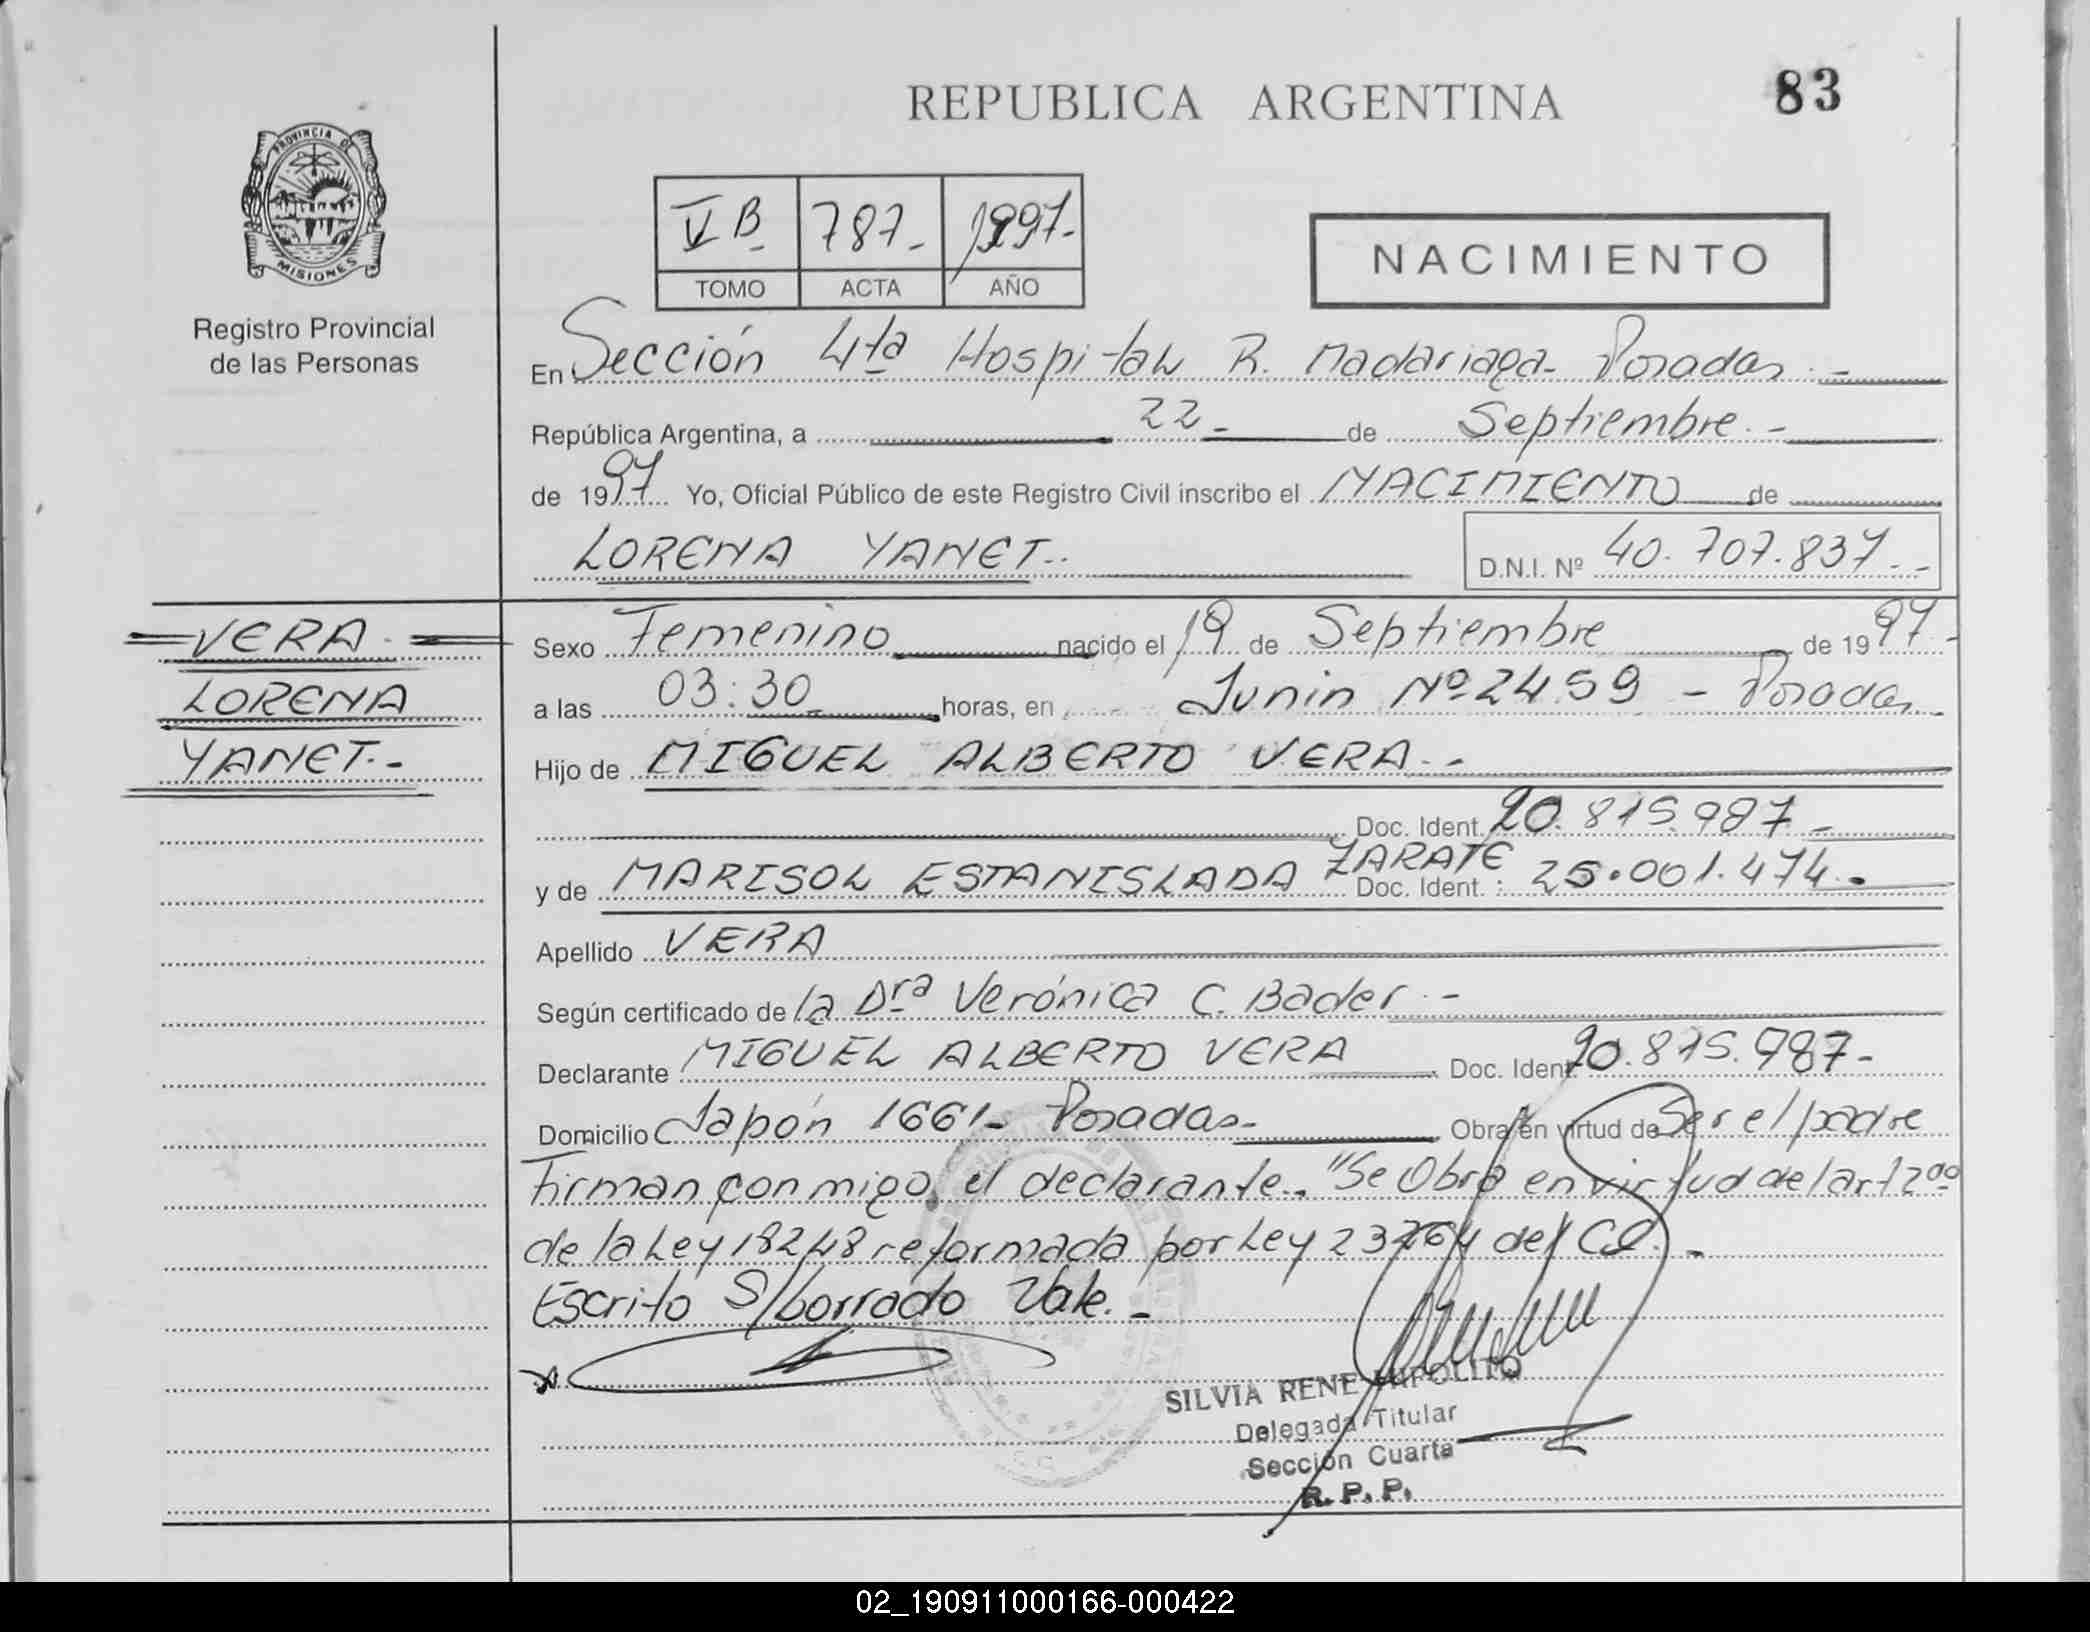 REPUBLICA ARGENTINA
83
PROVINCIA DE
MISIONES
Registro Provincial
de las Personas
V B. 787.- 1997.-
TOMO ACTA AÑO
NACIMIENTO
En Sección 4ta Hospital R. Madariaga- Posadas.-
República Argentina, a 22- de Septiembre.-
de 1997 Yo, Oficial Público de este Registro Civil inscribo el NACIMIENTO de
LORENA YANET.. D.N.I. Nº 40.707.837.-
VERA.
LORENA
YANET.-
Sexo Femenino nacido el 19 de Septiembre de 1997.-
a las 03:30 horas, en Junin Nº 2459 - Posadas
Hijo de MIGUEL ALBERTO VERA.-
Doc. Ident. 20.815.987.-
y de MARISOL ESTANISLADA ZARATE Doc. Ident.: 25.001.474.-
Apellido VERA
Según certificado de la Dra Verónica C. Bader.-
Declarante MIGUEL ALBERTO VERA Doc. Ident. 20.815.987-
Domicilio Japón 1661- Posadas.- Obra en virtud de Ser el padre
Firman conmigo, el declarante.. "Se Obra en virtud del art 2do
de la Ley 18248 reformada por Ley 23264 del CC.-
Escrito S/borrado Vale.-
SILVIA RENE HIPOLITO
Delegada Titular
Sección Cuarta
R. P. P.
02_190911000166-000422